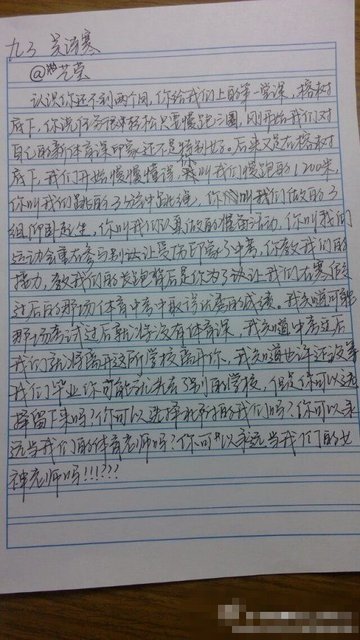 九3 吴语寒
@ 芝莹
认识你还不到两个月，你给我们上的第一堂课，榕树
底下，你说任务很轻松只要慢跑三圈，刚开始我们对
自己的新体育课印象还不是特别好。后来又是在榕树
底下，我们开始慢慢懂得，我叫我们慢跑的1200米，
你叫我们跳的3分钟跳绳，你叫我们做的3
组仰卧起坐，你叫我们认真做的准备活动，你叫我们
运动会重在参与别让受伤影响了中考，你教我们的
接力，教我们的长跑背后是你为了让我们在寒假
过后的那场体育中考中取得优秀的成绩。我知道可能
那场考试过后就将没有体育课，我知道中考过后
我们就将离开这所学校离开你，我知道也许还没等
我们毕业你可能就先去了别的学校，但是你可以选
择留下来吗？你可以选择我们吗？你可以永
远当我们的体育老师吗？你可以永远当我们的女
神老师吗！！！？？？